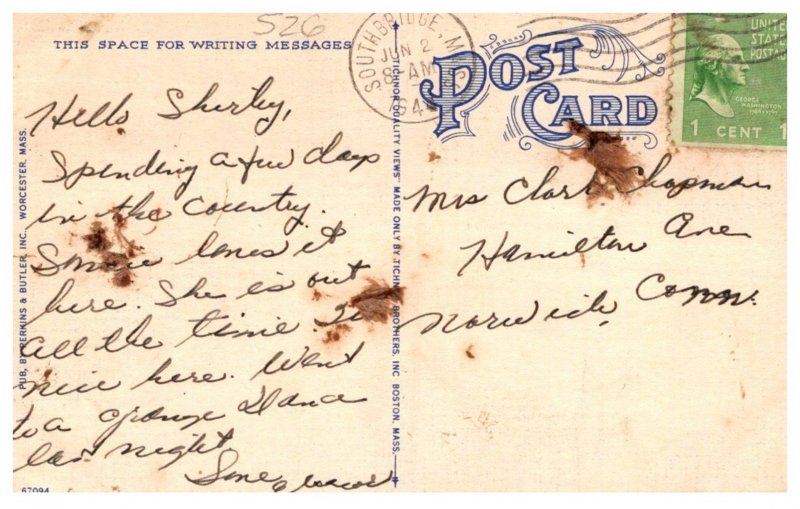 526
THIS SPACE FOR WRITING MESSAGES
Hello Shirley,
Spending a few days
in the Country.
loves it
here. She is out
all the time.
nice here. Went
to a grange dance
las night
PUB. BY PERKINS & BUTLER, INC., WORCESTER, MASS.
67094
"TICHNOR QUALITY VIEWS" MADE ONLY BY TICHNOR BROTHERS, INC. BOSTON, MASS.
SOUTHBRIDGE, M
JUN 2
8 AM
POST
CARD
UNITED
STATES
POSTAGE
GEORGE
WASHINGTON
1 CENT 1
Mrs Clark Chapman
Hamilton Ave
Norwich, Conn.